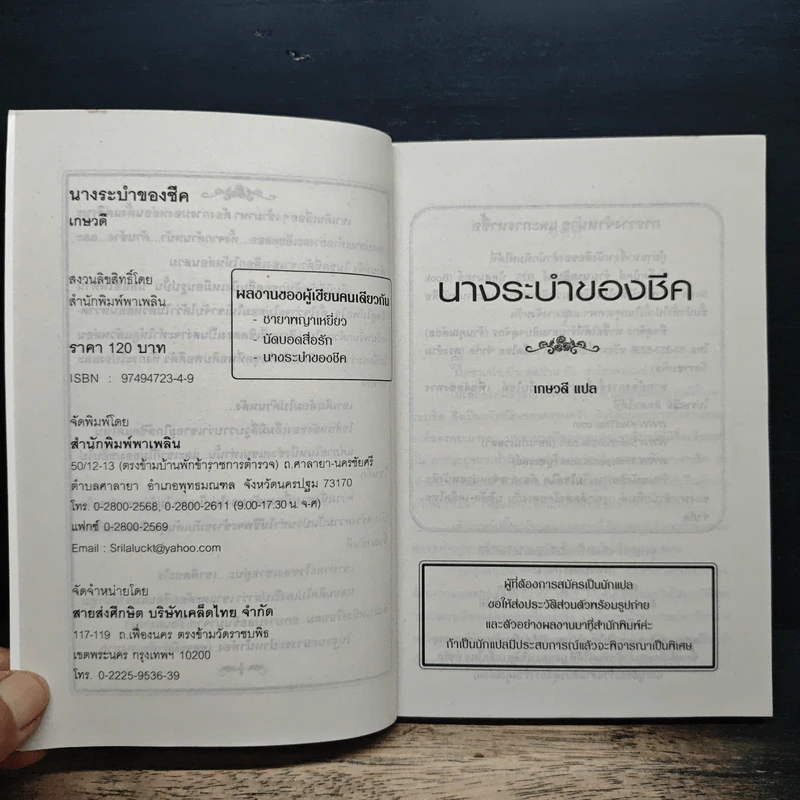 นางระบำของชีค
เกษวดี
สงวนลิขสิทธิ์โดย
สำนักพิมพ์พาเพลิน
ราคา 120 บาท
ISBN : 97494723-4-9
ผลงานของผู้เขียนคนเดียวกัน
- ชายาพญาเหยี่ยว
- นัดบอดสื่อรัก
- นางระบำของชีค
จัดพิมพ์โดย
สำนักพิมพ์พาเพลิน
50/12-13 (ตรงข้ามบ้านพักข้าราชการตำรวจ) ถ.ศาลายา-นครชัยศรี
ตำบลศาลายา อำเภอพุทธมณฑล จังหวัดนครปฐม 73170
โทร. 0-2800-2568, 0-2800-2611 (9.00-17.30 น. จ-ศ)
แฟกซ์ 0-2800-2569
Email : Srilaluckt@yahoo.com
จัดจำหน่ายโดย
สายส่งศึกษิต บริษัทเคล็ดไทย จำกัด
117-119 ถ.เฟื่องนคร ตรงข้ามวัดราชบพิธ
เขตพระนคร กรุงเทพฯ 10200
โทร. 0-2225-9536-39
นางระบำของชีค
เกษวดี แปล
ผู้ที่ต้องการสมัครเป็นนักแปล
ขอให้ส่งประวัติส่วนตัวพร้อมรูปถ่าย
และตัวอย่างผลงานมาที่สำนักพิมพ์ค่ะ
ถ้าเป็นนักแปลมีประสบการณ์แล้วจะพิจารณาเป็นพิเศษ